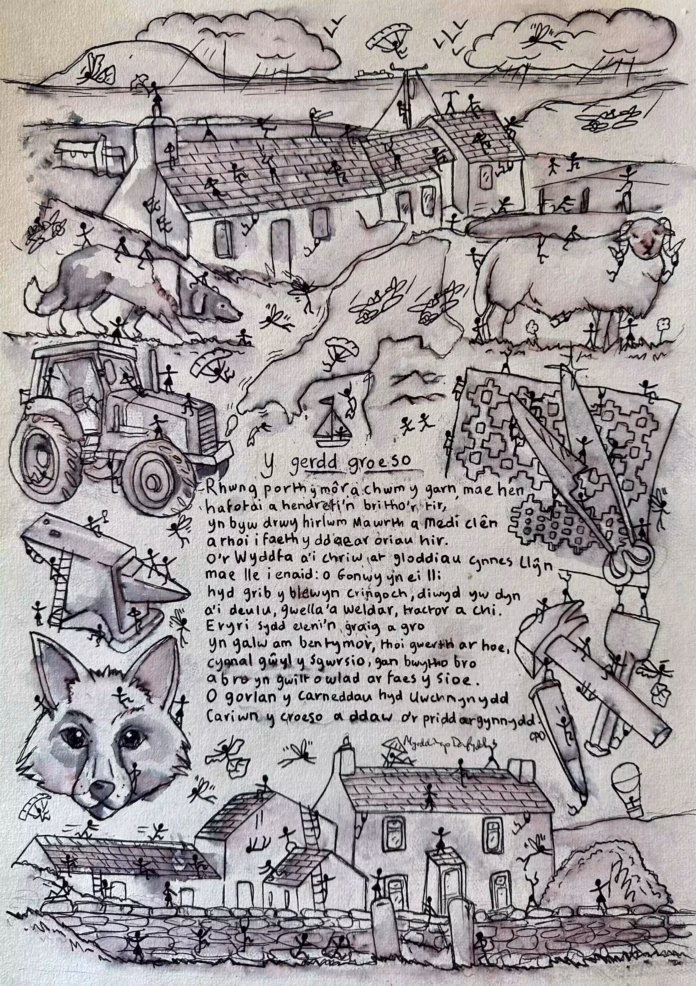 Y gerdd groeso
Rhwng porth y môr a chwm y garn, mae hen
hafotai a hendrefi'n britho'r tir,
yn byw drwy hirlwm Mawrth a Medi clên
a rhoi i faeth y ddaear oriau hir.
O'r Wyddfa a'i chriw ar gloddiau cynnes Llŷn
mae lle i enaid: o Gonwy yn ei lli
hyd grib y blewyn cringoch, diwyd yw dyn
a'i deulu, gwella'a weldar, tractor a chi.
Eryri sydd eleni'n graig a gro
yn galw am bentymor, rhoi gwerth ar hoe,
cynnal gŵyl y sgwrsio, gan bwytho bro
a bro yn gwilt o wlad ar faes y Sioe.
O gorlan y Carneddau hyd Uwchmynydd
Cariwn y croeso a ddaw o'r pridd ar gynnydd.
CPD